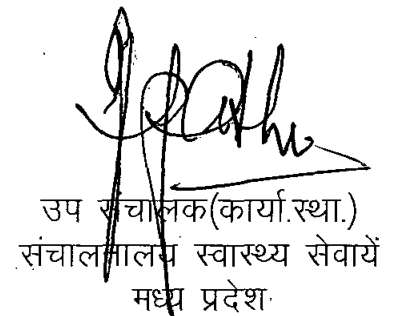 उप संचालक(कार्या.स्था.)
संचालनालय स्वास्थ्य सेवायें
मध्य प्रदेश